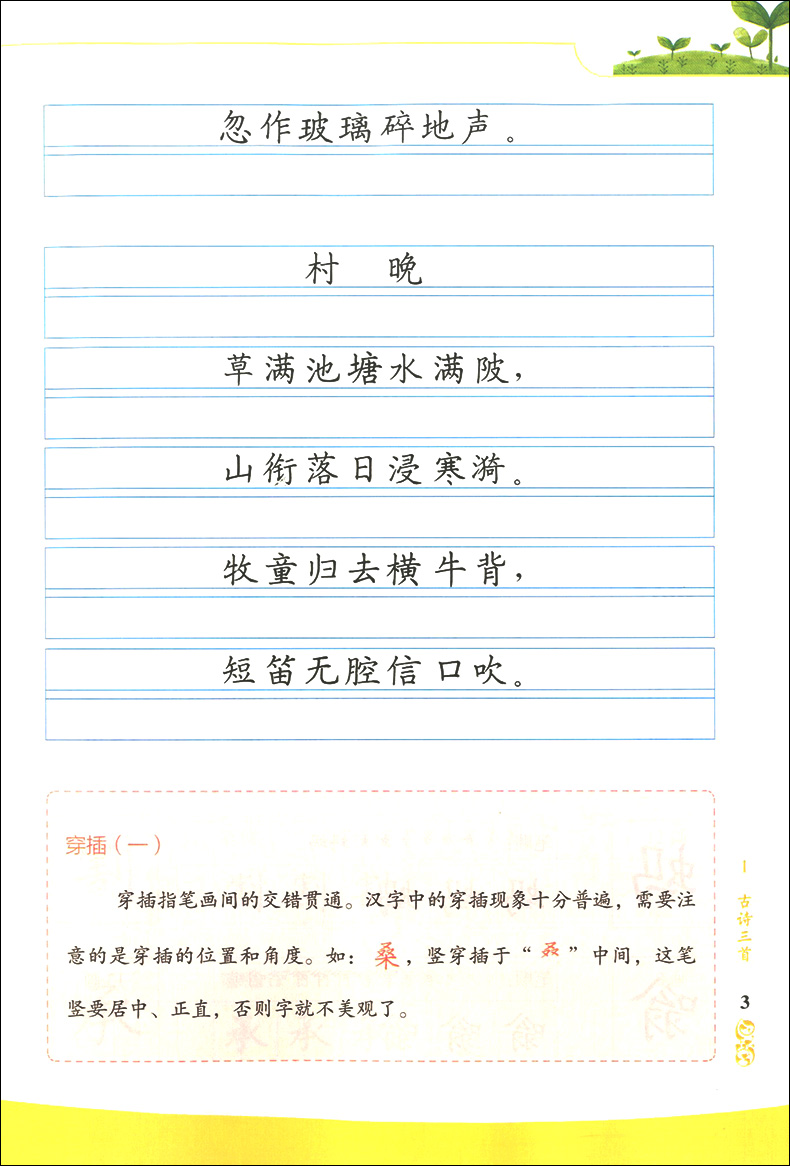 忽作玻璃碎地声。
村 晚
草满池塘水满陂，
山衔落日浸寒漪。
牧童归去横牛背，
短笛无腔信口吹。
穿插（一）
穿插指笔画间的交错贯通。汉字中的穿插现象十分普遍，需要注
意的是穿插的位置和角度。如：桑，竖穿插于“叒”中间，这笔
竖要居中、正直，否则字就不美观了。
1 古诗三首
3